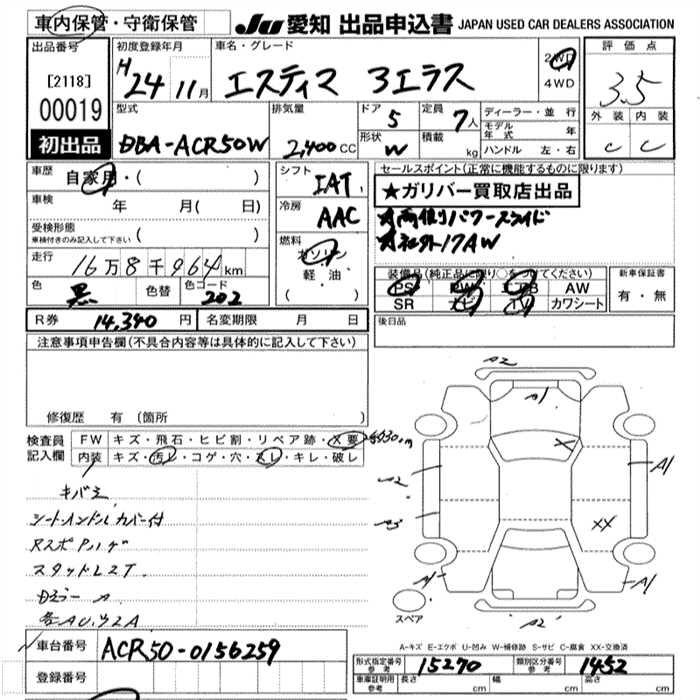 車内保管・守衛保管
JU 愛知 出品申込書 JAPAN USED CAR DEALERS ASSOCIATION
出品番号 初度登録年月 車名・グレード 評価点
[2118] H 24 11月 エスティマ アエラス 2WD 4WD 3.5
00019
型式 排気量 ドア 5 定員 7人 ディーラー・並行 外装 内装
初出品 DBA-ACR50W 2,400CC 形状 W 積載 kg モデル年式 年 C C
ハンドル 左・右
車歴 自家用・( ) シフト IAT セールスポイント(正常に機能するものに限ります)
車検 年 月( 日) 冷房 AAC ★ガリバー買取店出品
受検形態 車検付きのみ記入して下さい ( ) ★両側パワースライド
燃料 ガソリン 軽・油 ( ) ★社外17AW
走行 16万8千964km
装備品(純正品に限り○をつけてください) 新車保証書
色 黒 色替 色コード 202 PS PW エアB AW 有・無
SR ナビ TV カワシート
R券 14,340円 名変期限 月 日 後日品
注意事項申告欄(不具合内容等は具体的に記入して下さい)
修復歴 有 (箇所 )
検査員記入欄 FW キズ・飛石・ヒビ割・リペア跡・X要
内装 キズ・汚レ・コゲ・穴・スレ・キレ・破レ
A2
A1
X
A2 A1
シートハンドルカバー付
A3 XX
A1 A1
スペア A2
車台番号 ACR50-0156259
A-キズ E-エクボ U-凹み W-補修跡 S-サビ C-腐食 XX-交換済
登録番号
形式指定番号 参考 15270 類別区分番号 参考 1452
車庫証明用 参考 長さ cm 幅 cm 高さ cm